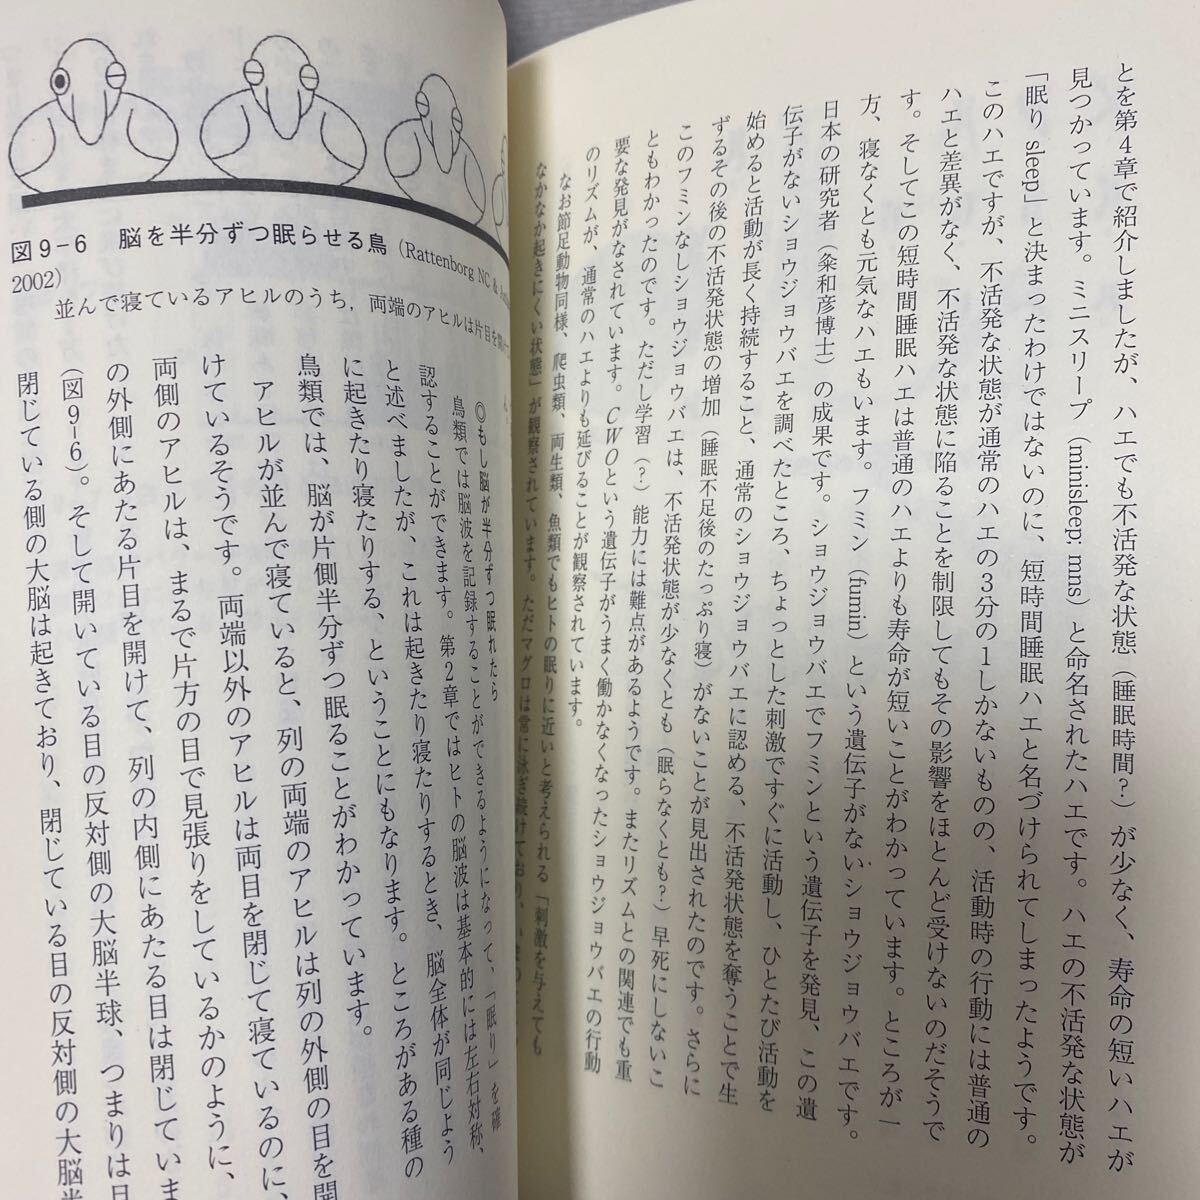 とを第4章で紹介しましたが、ハエでも不活発な状態（睡眠時間？）が少なく、寿命の短いハエが
見つかっています。ミニスリープ（minisleep: mns）と命名されたハエです。ハエの不活発な状態が
「眠り sleep」と決まったわけではないのに、短時間睡眠ハエと名づけられてしまったようです。
このハエですが、不活発な状態が通常のハエの3分の1しかないものの、活動時の行動には普通の
ハエと差異がなく、不活発な状態に陥ることを制限してもその影響をほとんど受けないのだそうで
す。そしてこの短時間睡眠ハエは普通のハエよりも寿命が短いことがわかっています。ところが一
方、寝なくとも元気なハエもいます。フミン（fumin）という遺伝子がないショウジョウバエです。
日本の研究者（粂和彦博士）の成果です。ショウジョウバエでフミンという遺伝子を発見、この遺
伝子がないショウジョウバエを調べたところ、ちょっとした刺激ですぐに活動し、ひとたび活動を
始めると活動が長く持続すること、通常のショウジョウバエに認める、不活発状態を奪うことで生
ずるその後の不活発状態の増加（睡眠不足後のたっぷり寝）がないことが見出されたのです。さらに
このフミンなしショウジョウバエは、不活発状態が少なくとも（眠らなくとも？）早死にしないこ
ともわかったのです。ただし学習（？）能力には難点があるようです。またリズムとの関連でも重
要な発見がなされています。CWOという遺伝子がうまく働かなくなったショウジョウバエの行動
のリズムが、通常のハエよりも延びることが観察されています。
なお節足動物同様、爬虫類、両生類、魚類でもヒトの眠りに近いと考えられる「刺激を与えても
なかなか起きにくい状態」が観察されています。ただマグロは常に泳ぎ続けており、
図9-6 脳を半分ずつ眠らせる鳥（Rattenborg NC &
2002）
並んで寝ているアヒルのうち，両端のアヒルは片目を
◎もし脳が半分ずつ眠れたら
鳥類では脳波を記録することができるようになって、「眠り」を確
認することができます。第2章ではヒトの脳波は基本的には左右対称、
と述べましたが、これは起きたり寝たりするとき、脳全体が同じよう
に起きたり寝たりする、ということにもなります。ところがある種の
鳥類では、脳が片側半分ずつ眠ることがわかっています。
アヒルが並んで寝ていると、列の両端のアヒルは列の外側の目を開
けているそうです。両端以外のアヒルは両目を閉じて寝ているのに、
両側のアヒルは、まるで片方の目で見張りをしているかのように、
の外側にあたる片目を開けて、列の内側にあたる目は閉じていま
（図9-6）。そして開いている目の反対側の大脳半球、つまりは
閉じている側の大脳は起きており、閉じている目の反対側の大脳